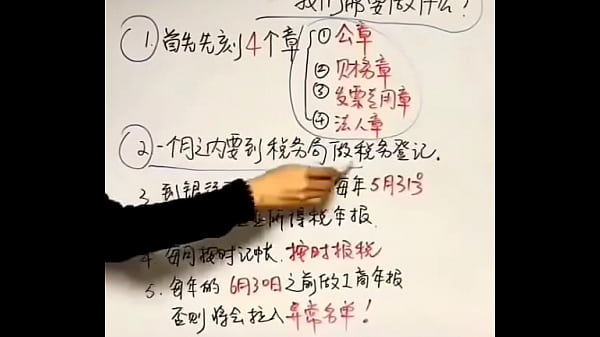 我们都要做什么？
1. 首先先刻4个章
① 公章
② 财务章
③ 发票专用章
④ 法人章
2 一个月之内要到税务局做税务登记.
3 到银 每年5月31号
所得税年报.
4. 每月按时记帐. 按时报税
5. 每年的6月30日之前做工商年报
否则将会拉入异常名单！